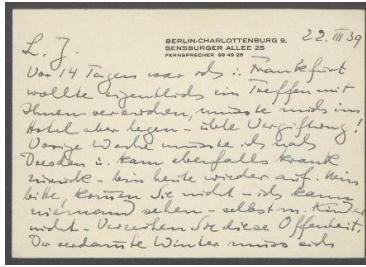 BERLIN-CHARLOTTENBURG 9,
SENSBURGER ALLEE 25
FERNSPRECHER 99 49 26
22. III 39
L. J.
Vor 14 Tagen war ich i. Frankfurt
wollte eigentlich ein Treffen mit
Ihnen verabreden, musste mich ins
Hotel aber legen – üble Vergiftung!
Vorige Woche musste ich nach
Dresden u. kam ebenfalls krank
zurück – bin heute wieder auf. Nein
bitte, kommen Sie nicht – ich kann
niemand sehen – selbst m. Kinder
nicht – Verzeihen Sie diese Offenheit.
Der verdammte Winter muss sich